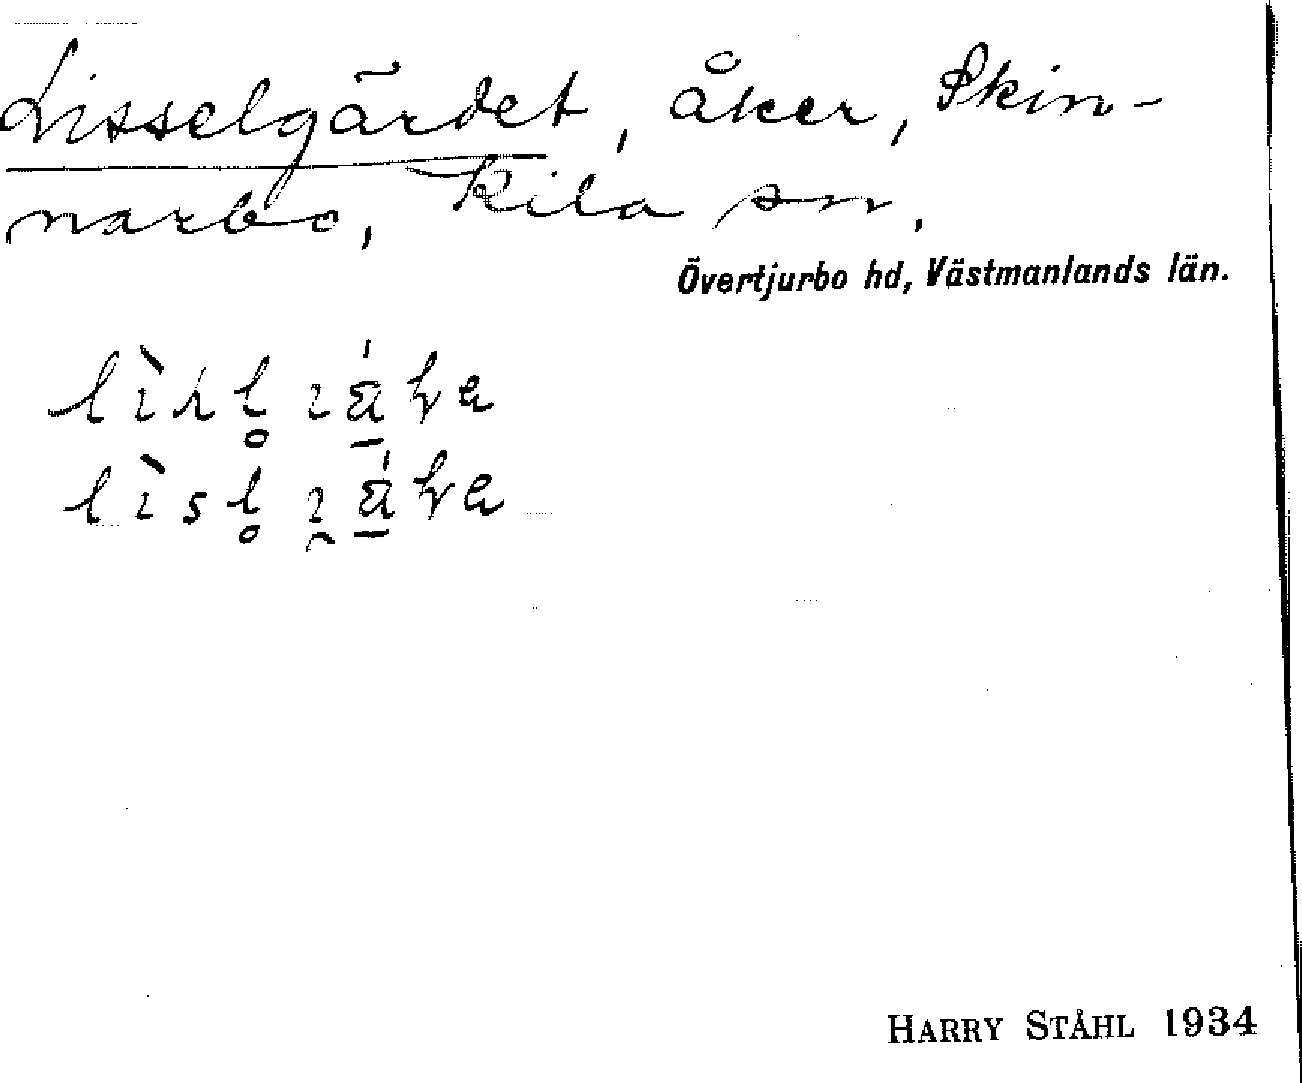 Lisselgärdet, åker, Skin-
narbo, Kila sn.
Övertjurbo hd, Västmanlands län.
HARRY STÅHL 1934